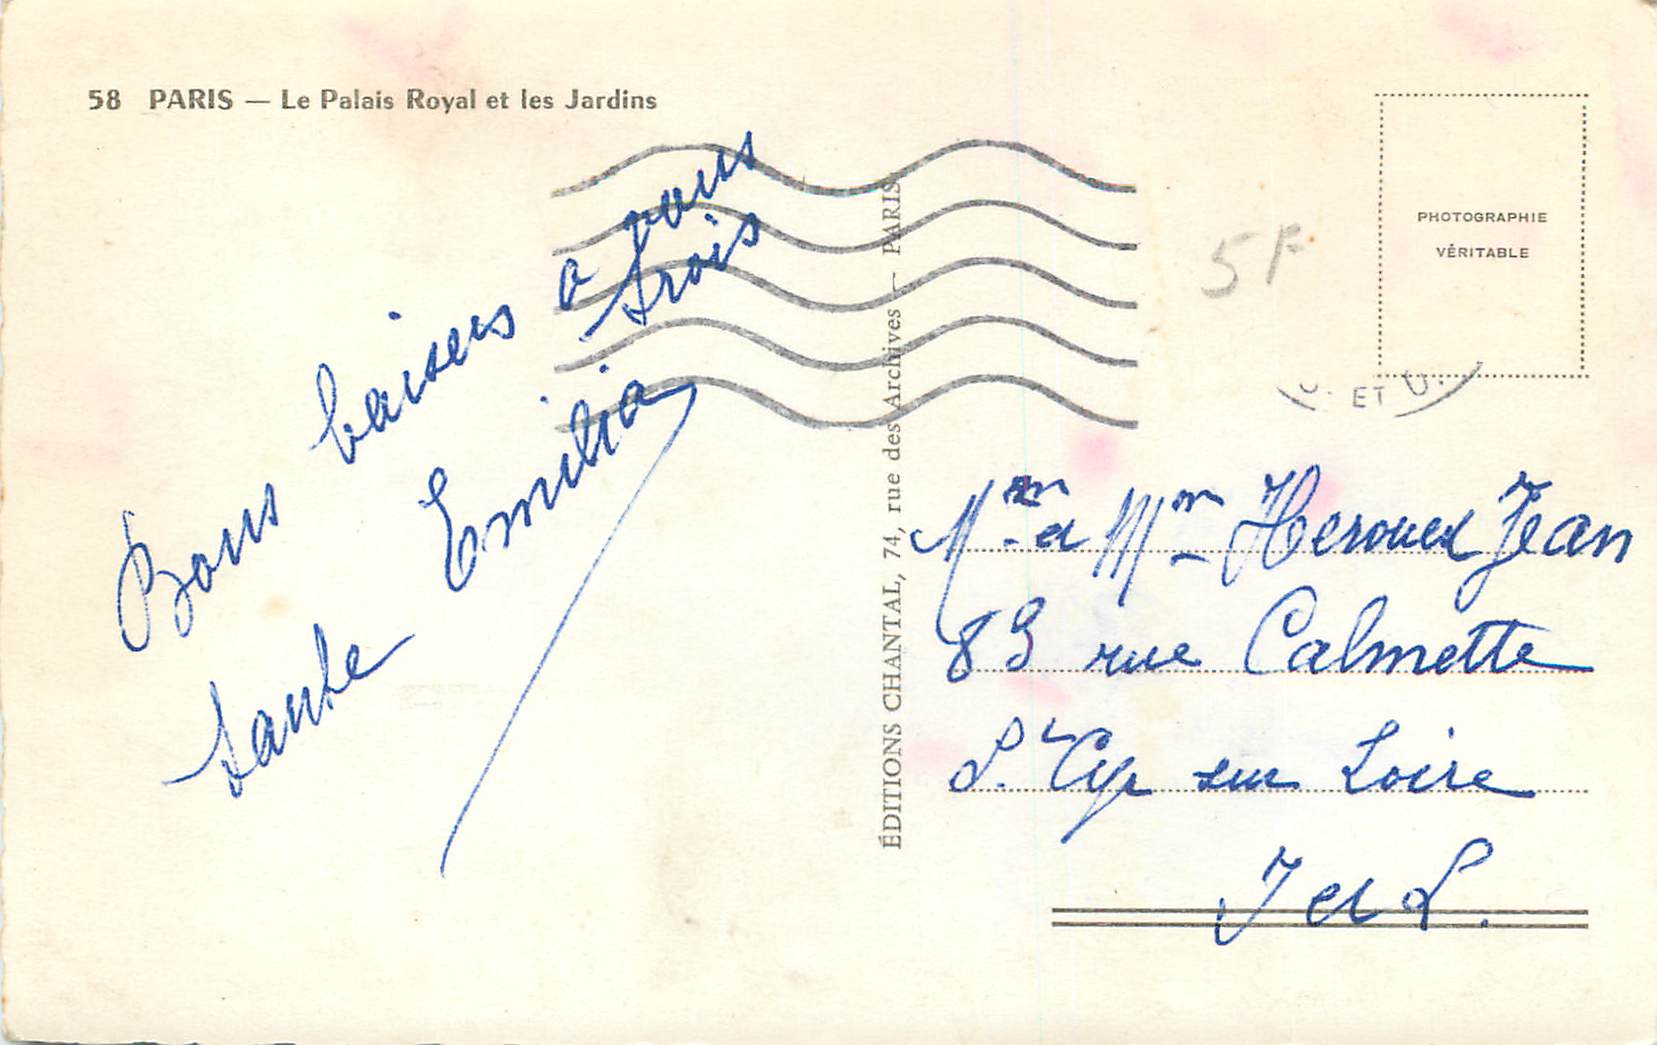 58 PARIS — Le Palais Royal et les Jardins
PHOTOGRAPHIE
VÉRITABLE
5F
ÉDITIONS CHANTAL, 74, rue des Archives — PARIS
. ET U.
Bons baisers a tous
trois
tante Emilia
et Mm Jean
83 rue Calmette
St Cyr sur Loire
I et L.